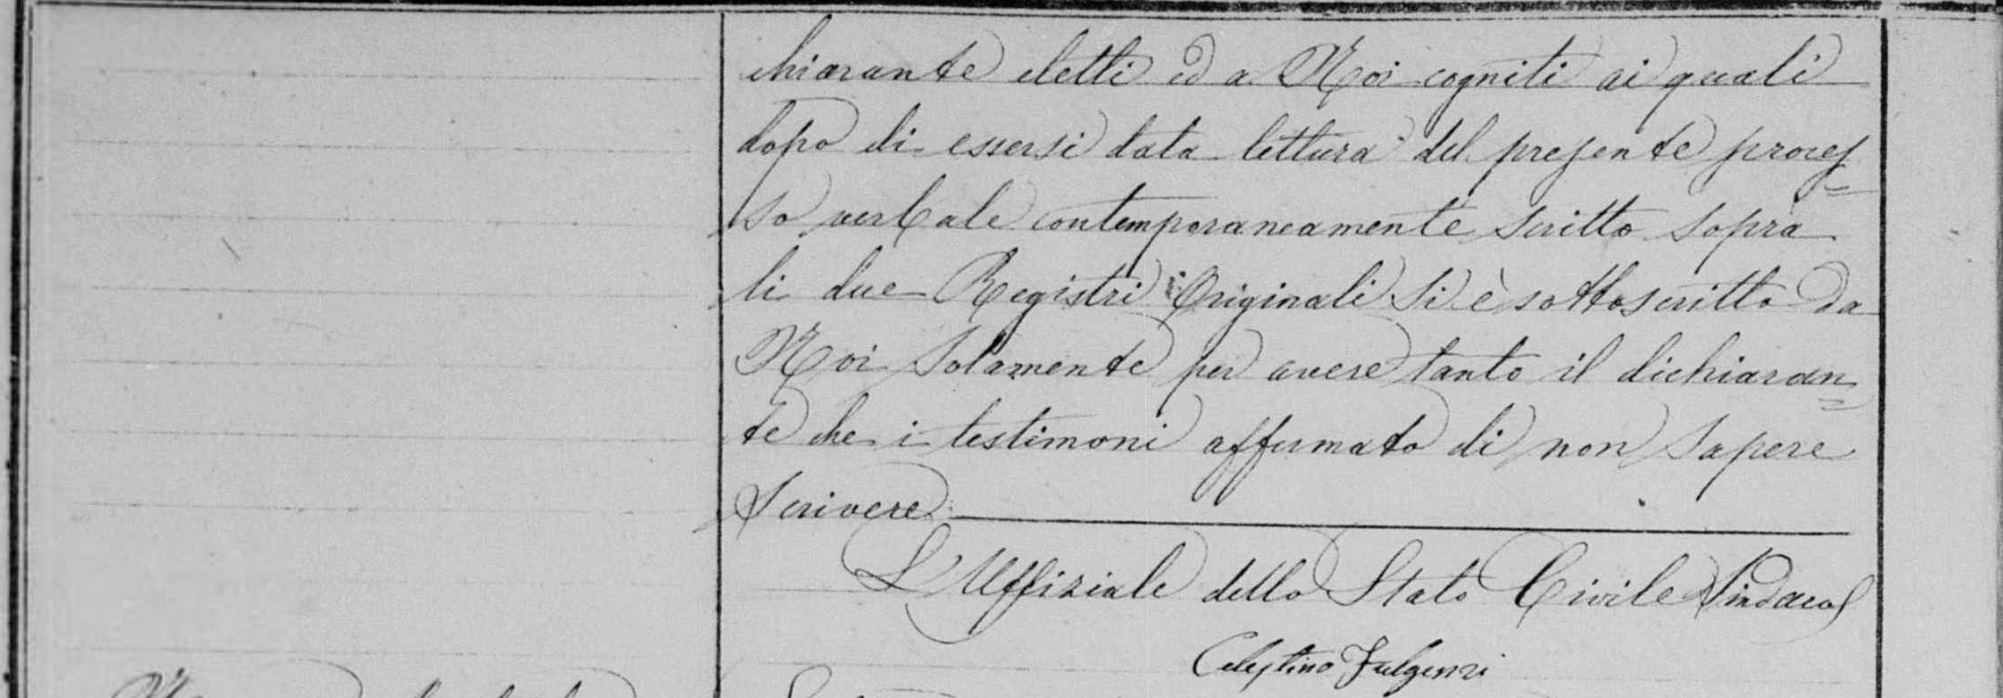 chiarante eletti ed a Noi cogniti ai quali
dopo di essersi data lettura del presente proces
so verbale contemporaneamente scritto sopra
li due Registri Originali si è sottoscritto da
Noi solamente per avere tanto il dichiaran
te che i testimoni affermato di non sapere
scrivere
L'Uffiziale dello Stato Civile Sindaco
Celestino Fulgenzi